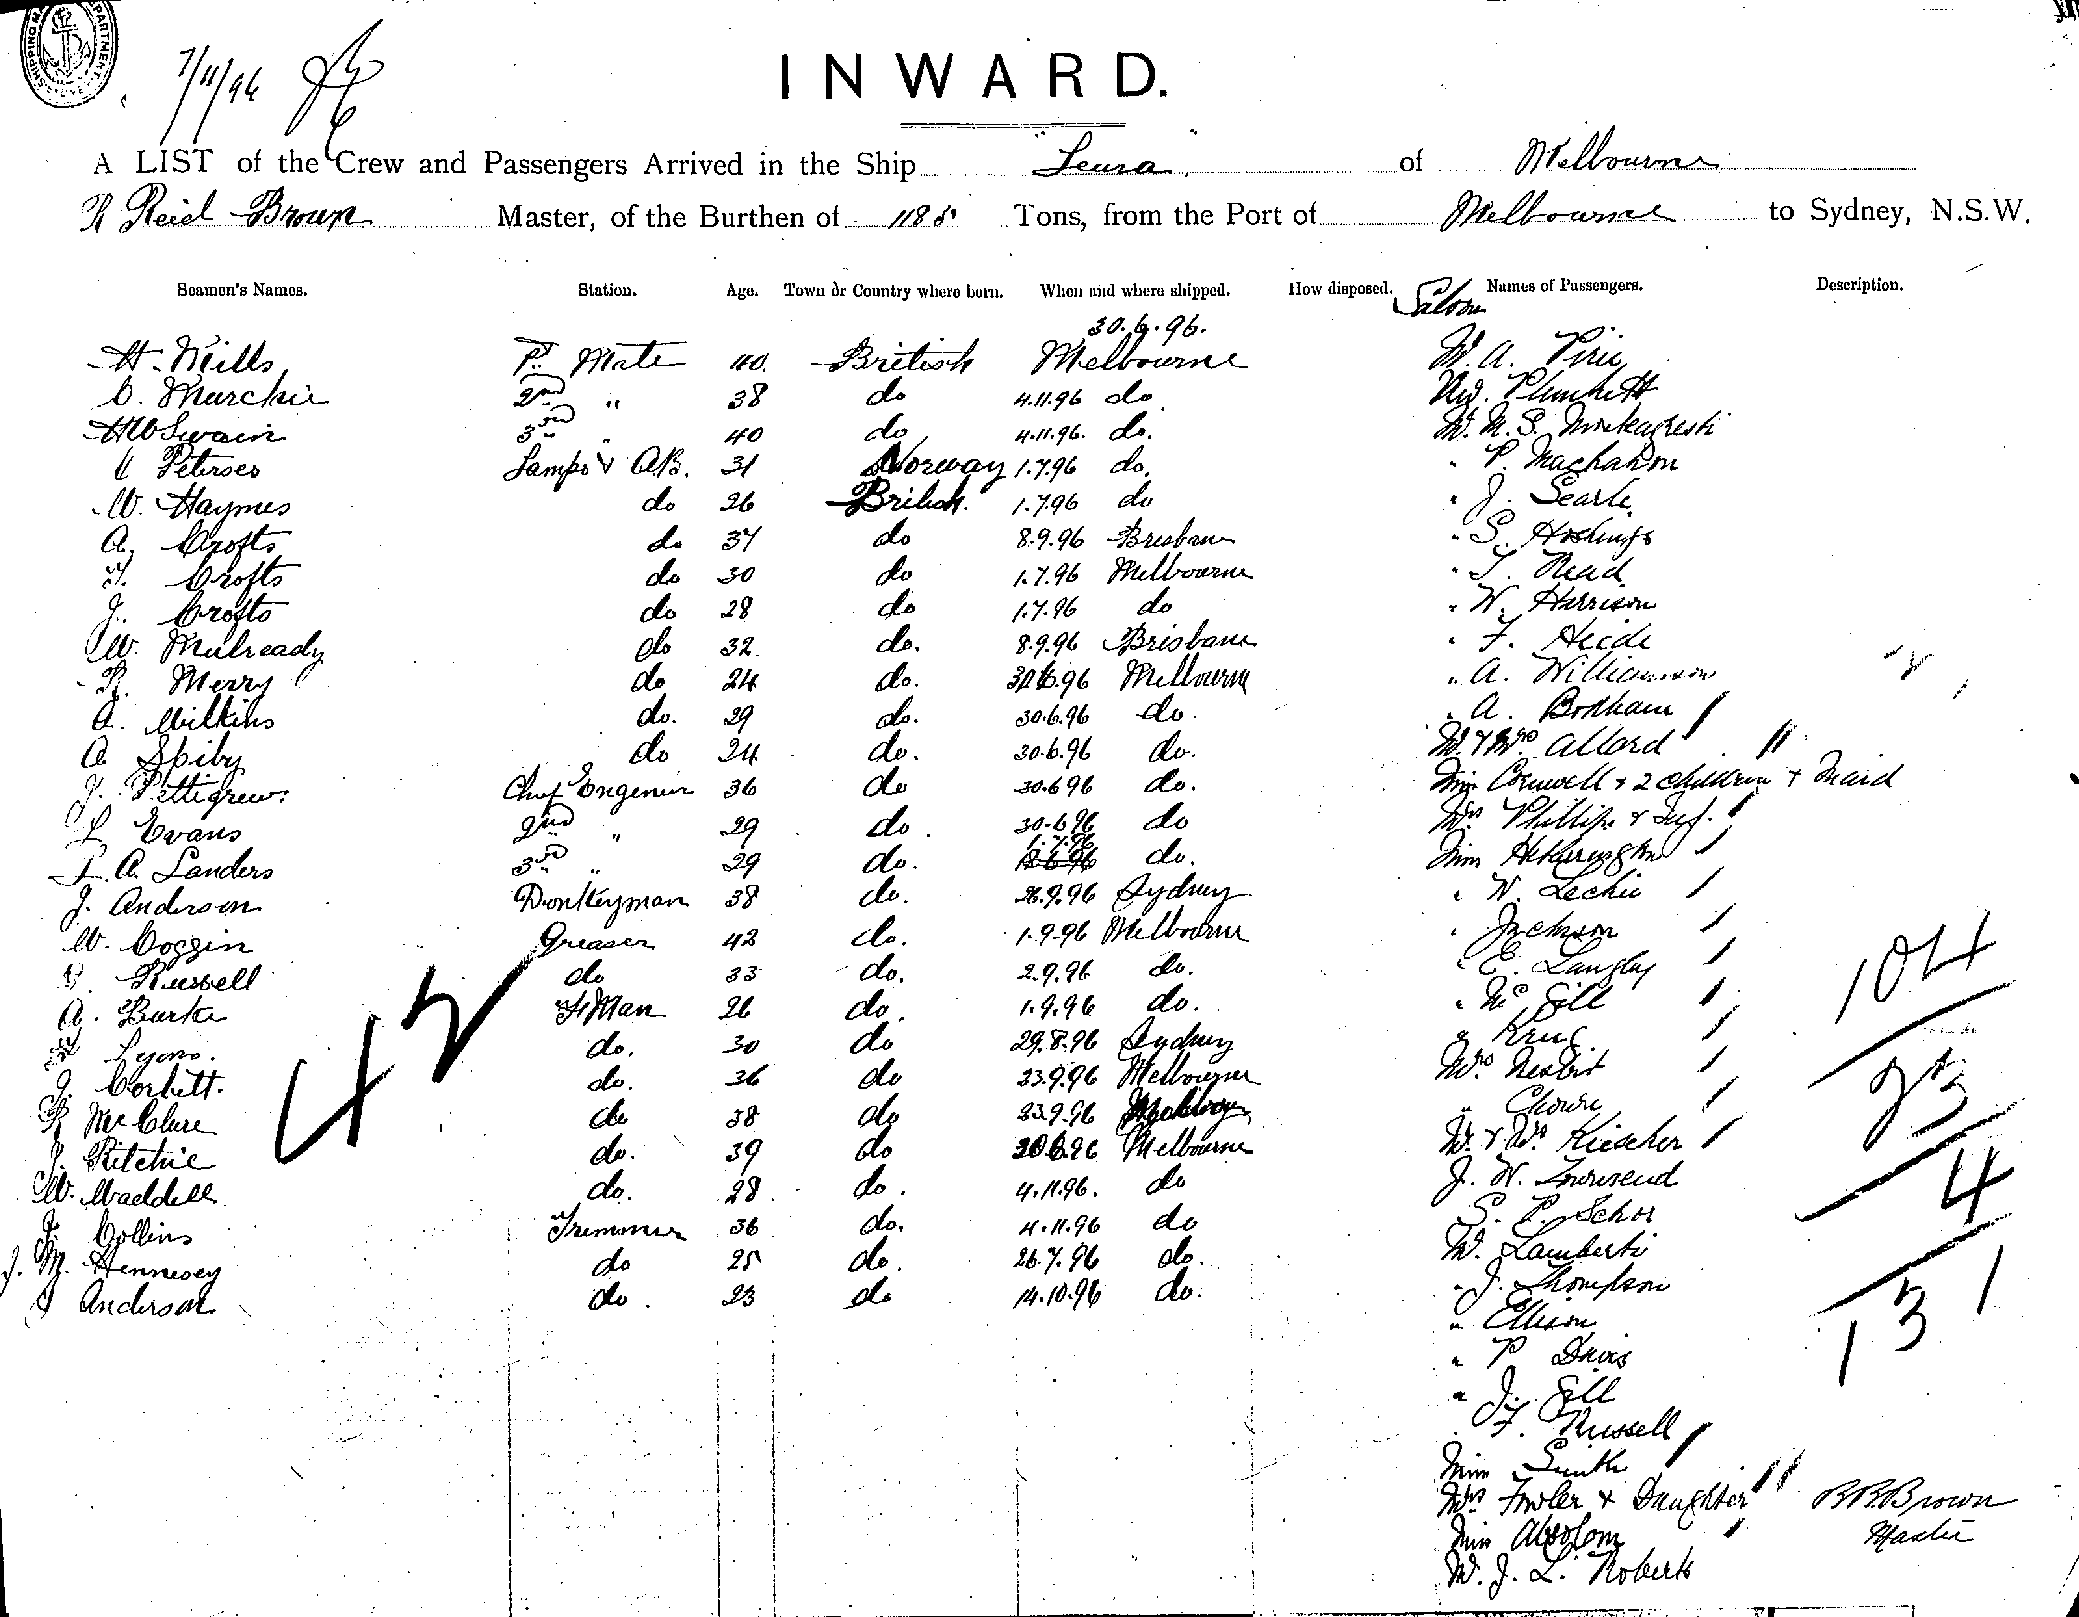 SHIPPING
7/11/96
INWARD.
A LIST of the Crew and Passengers Arrived in the Ship "Leura" of Melbourne
R Reid Brown Master, of the Burthen of 1186 Tons, from the Port of Melbourne to Sydney, N.S.W.
Seamen's Names. Station. Age. Town or Country where born. When and where shipped. How disposed. Names of Passengers. Description.
Saloon
30.6.96.
H. Mills 1st Mate 40. British Melbourne M. A. Pirie
C. Murchie 2nd " 38 do 4.11.96 do Plunkett
McSwain 3rd " 40 do 4.11.96. do. M. M. S.
C Peterses Lamps & A.B. 31 Norway 1.7.96 do. " P. Macmahon
W. Haymes do 26 British. 1.7.96 do " J. Searle
A. Crofts do 37 do 8.9.96 Brisbane " S. Hoskings
T. Crofts do 30 do 1.7.96 Melbourne " T. Read
J. Crofts do 28 do 1.7.96 do " W. Harrison
W. Mulready do 32 do. 8.9.96 Brisbane " F. Heide
R. Merry do 24 do. 30.6.96 Melbourne " A. Williamson
A. Wilkins do. 29 do. 30.6.96 do. " A. Bonham
A. Spiby do 24 do. 30.6.96 do. Mr & Mrs Allard
J. Pettigrew. Chief Engeneer 36 do 30.6.96 do. Miss Cornwell & 2 children & Maid
L Evans 2nd " 29 do. 30.6.96 do Mrs Phillips & Inf.
1.7.96
F. A. Landers 3rd " 29 do. do. Miss Hetherington
J. Anderson Donkeyman 38 do. 26.9.96 Sydney " N. Leckie
W. Coggin Greaser 42 do. 1.9.96 Melbourne " Jackson
Russell do 33 do. 2.9.96 do. " E. Langley
A. Burke F Man 26 do. 1.9.96 do. " McGill
Lyons. do. 30 do 29.8.96 Sydney " Krug
J. Corbett. do. 36 do 23.9.96 Melbourne Mrs Nesbit
R McClure do 38 do 23.9.96 " Chown
J. Ritchie do. 39 do 30.6.96 Melbourne Mr & Mrs Kiescher
W. Waddell do. 28 do. 4.11.96. do J. W. Townsend
J. Collins Tremmer 36 do. 4.11.96 do S. P. Schor
J. M. Hennesey do 25 do. 26.7.96 do. M. Lamberti
J Anderson do. 23 do 14.10.96 do. " J. Thompson
" Ellison
" P Davis
" J. Gill
F. Russell
Miss Smith
Mrs Fowler & Daughter
Miss Absolom
M. J. L. Roberts
42
104
23
4
131
R R Brown
Master